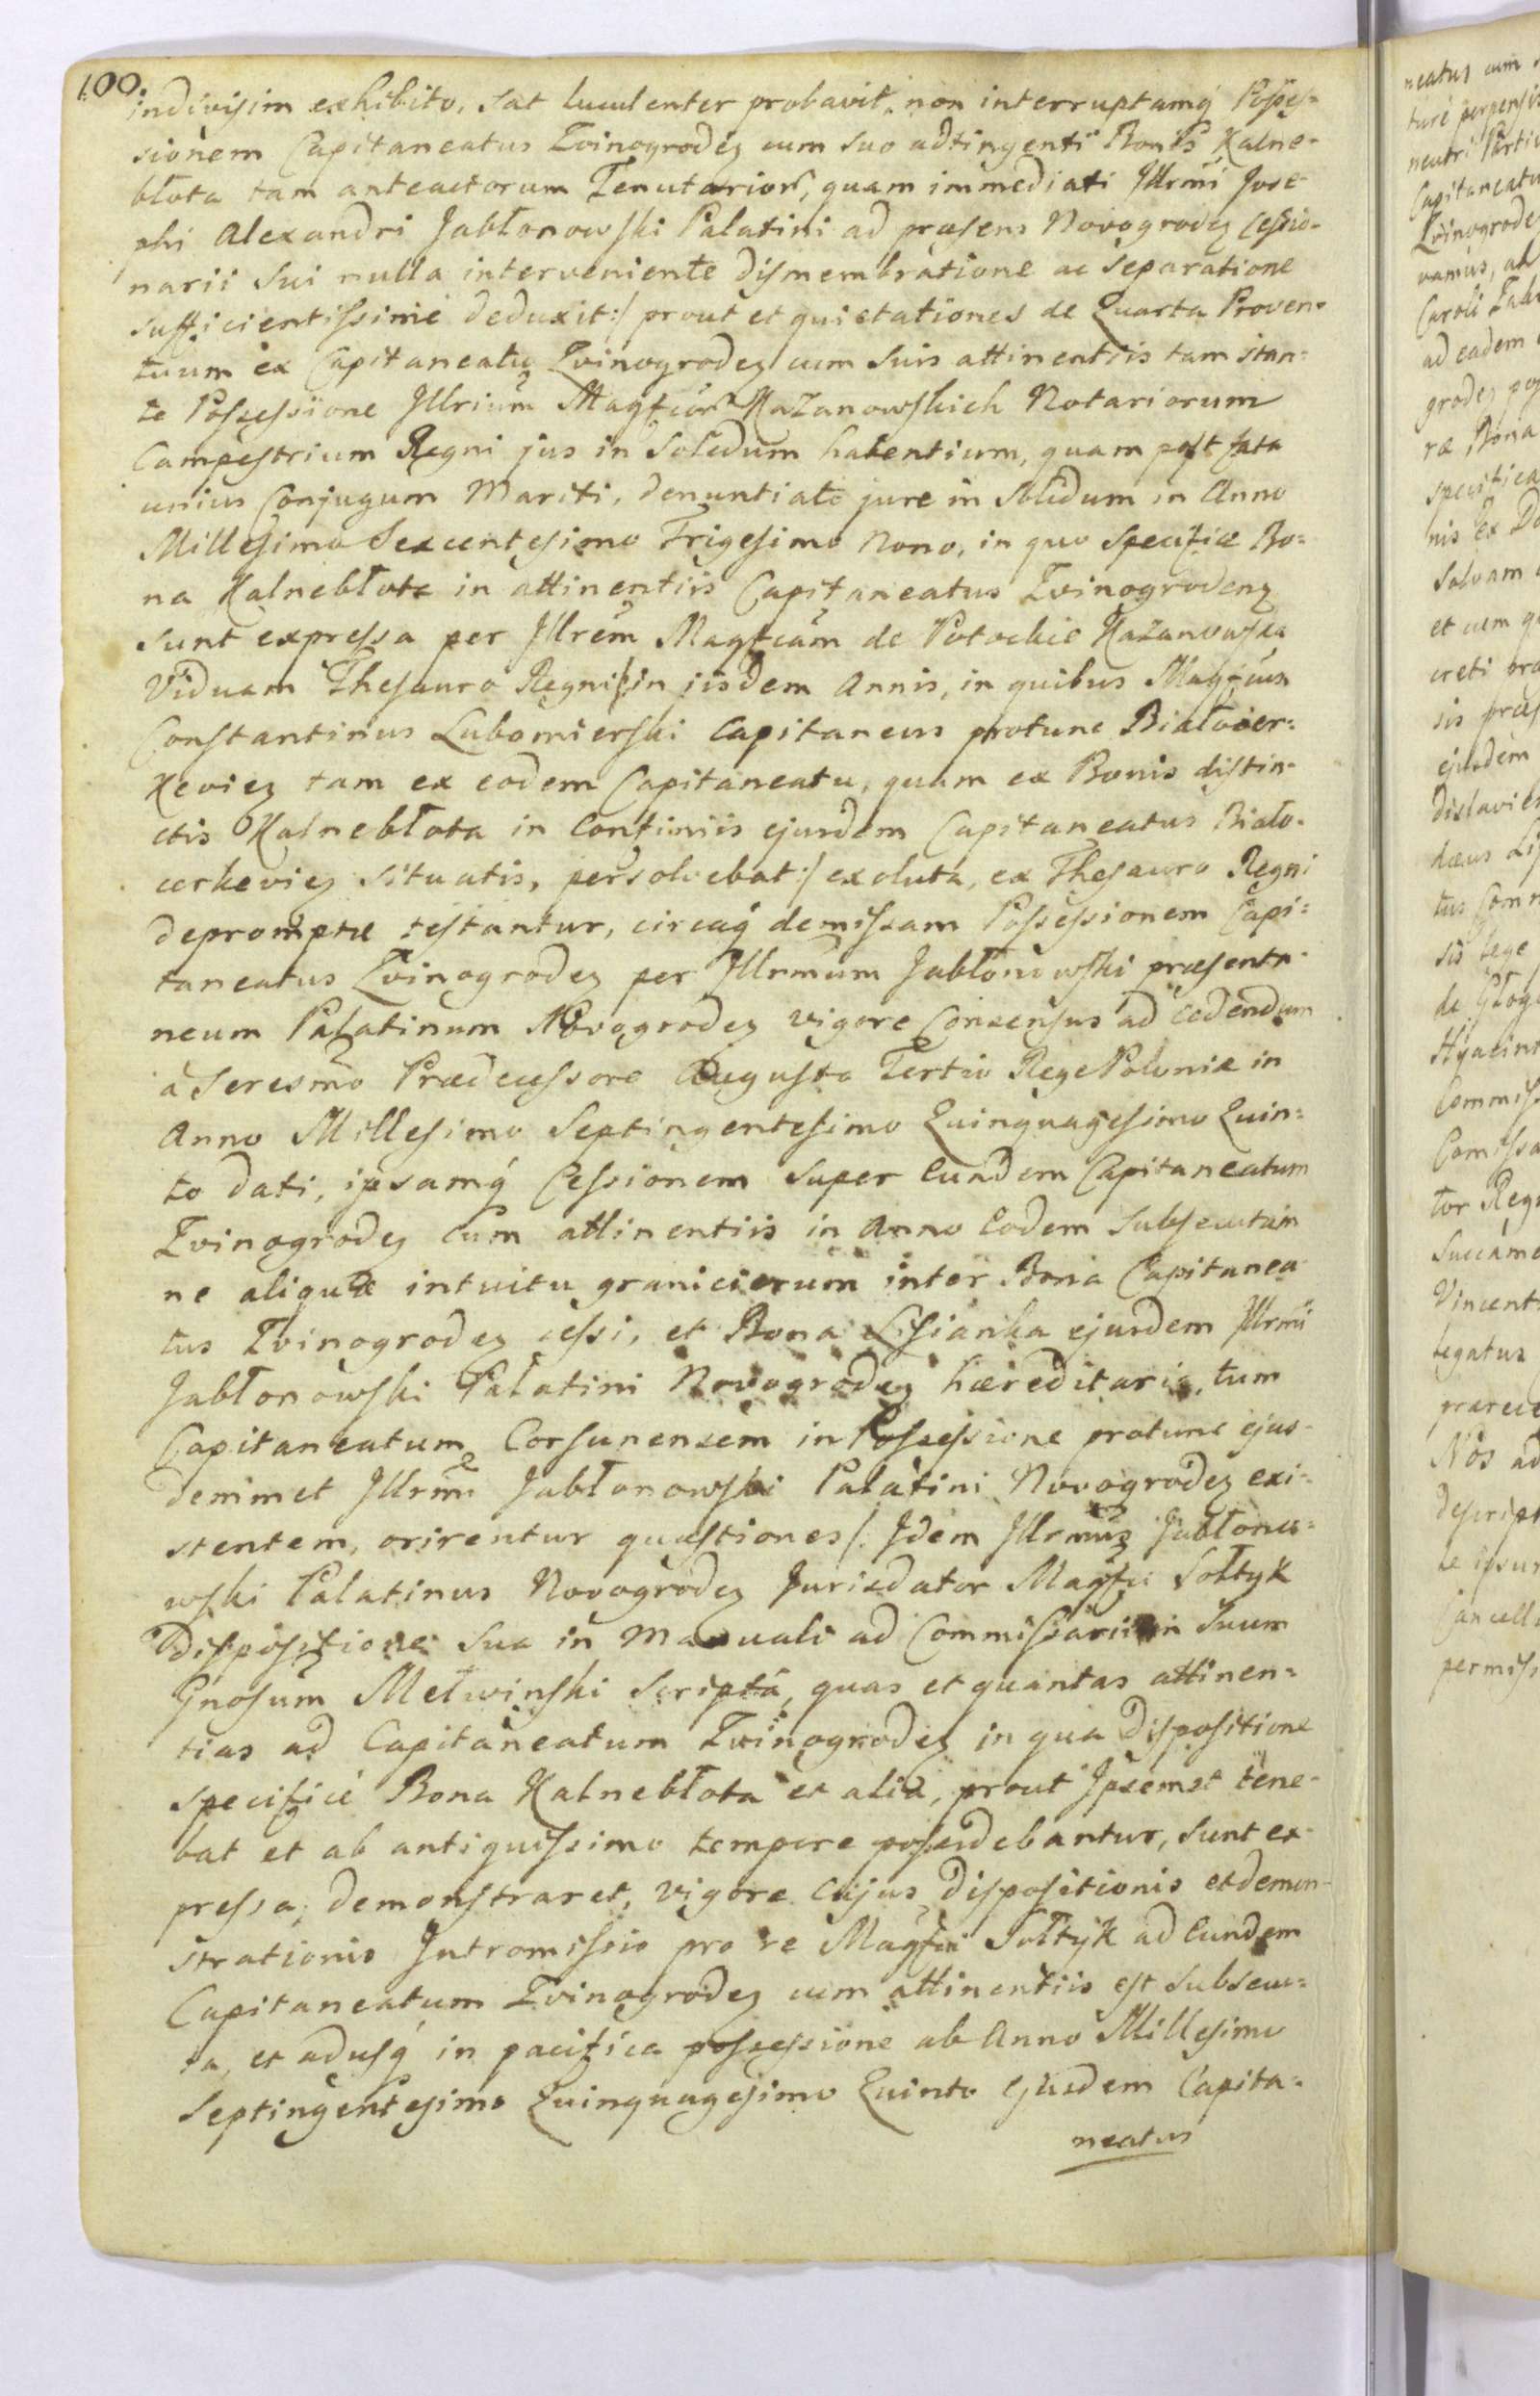 100.
indivisim exhibito, sat luculenter probavit, non interruptamq́ Posses-
sionem Capitaneatus Zvinogrodeṅ cum suo adtingenti Bonis Kalne-
błota tam anteactorum Tenutarior̃, quam immediati Jllrmi Jose-
phi Alexandri Jabłonowski Palatini ad præsens Novogrodeṅ Cessio-
narii sui nulla interveniente dismembratione ac separatione
sufficientissimè deduxit:/ prout et quietationes de Quarta Proven-
tuum ex Capitaneatu Zvinogrodeṅ cum suis attinentiis tam stan-
te Possessione Jllrium Magfcor̃ Kazanowskich Notariorum
Campestrium Regni jus in solidum habentium, quam post fata
unius Conjugum Mariti, denuntiato jure in solidum in Anno
Millesimo Sexcentesimo Trigesimo Nono, in quo specifice Bo-
na Kalnebłota in attinentiis Capitaneatus Zvinogrodenṅ
sunt expressa per Jllrem Magfcam de Potockie Kazanowska
Viduam Thesauro Regni /:in iisdem Annis, in quibus Magfcus
Constantinus Lubomierski Capitaneus protunc Białocer-
kevieṅ tam ex eodem Capitaneatu, quam ex Bonis distin-
ctis Kalnebłota in Confiniis ejusdem Capitaneatus Biało-
cerkevieṅ situatis, persolvebat:/ exoluta, ex Thesauro Regni
depromptæ testantur, circaq́ demissam Possessionem Capi-
taneatus Zvinogrodeṅ per Jllrmum Jabłonowski præsenta-
neum Palatinum Novogrodeṅ vigore Consensus ad cedendum
à Seresmo Prædecessore Augusto Tertio Rege Poloniæ in
Anno Millesimo Septingentesimo Quinquagesimo Quin-
to dati, ipsamq́ Cessionem super Eundem Capitaneatum
Zvinogrodeṅ cum attinentiis in Anno Eodem subsecutam
ne aliquæ intuitu granicierum inter Bona Capitanea-
tus Zvinogrodeṅ cessi, et Bona Lisianka ejusdem Jllrmi
Jabłonowski Palatini Novogrodeṅ hæreditaria, tum
Capitaneatum Corsunensem in Possessione protunc ejus-
demmet Jllrmi Jabłonowski Palatini Novogrodeṅ exi-
stentem, orirentur quæstiones/: Jdem Jllrmus Jabłono-
wski Palatinus Novogrodeṅ Jurisdator Magfci Sołtyk
Dispositione sua in Manuali ad Commissarium Suum
Gnosum Metwinski scripta, quas et quantas attinen-
tias ad Capitaneatum Zvinogrodeṅ in qua Dispositione
specificè Bona Kalnebłota et alia, prout Jpsemet tene-
bat et ab antiquissimo tempore possidebantur, sunt ex-
pressa, demonstraret, vigore cujus Dispositionis et demon-
strationis Jntromissio pro re Magfci Sołtyk ad Eundem
Capitaneatum Zvinogrodeṅ cum attinentiis est subsecu-
ta, et adusq́ in pacifica possessione ab Anno Millesimo
Septingentesimo Quinquagesimo Quinto ejusdem Capita-
neatus